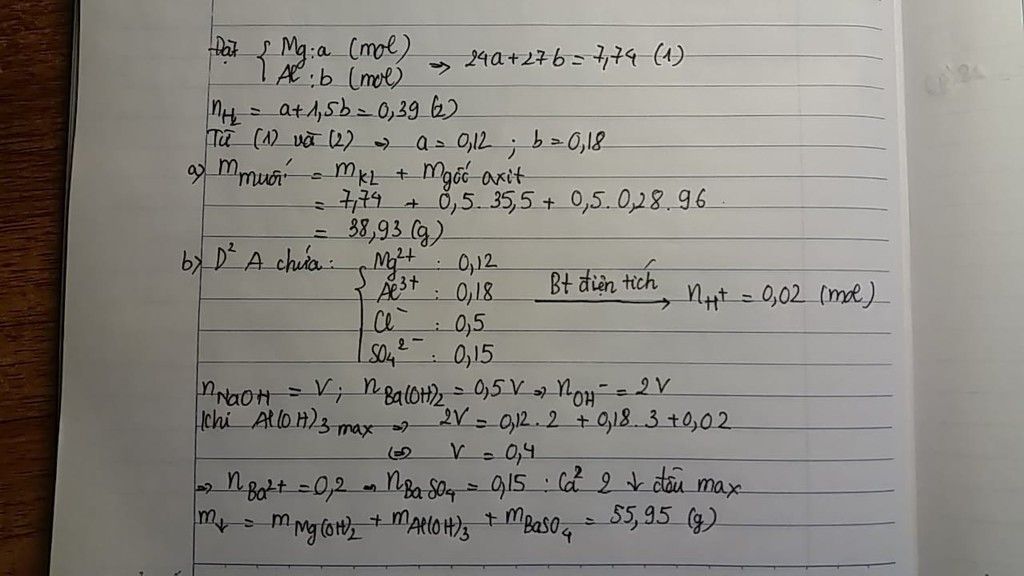 Đặt { Mg: a (mol)
Al: b (mol) ⇒ 24a+27b = 7,74 (1)
nH₂ = a+1,5b = 0,39 (2)
Từ (1) và (2) ⇒ a = 0,12 ; b = 0,18
a) m muối = mKL + m gốc axit
= 7,74 + 0,5. 35,5 + 0,5. 0,28. 96
= 38,93 (g)
b) D² A chứa: { Mg²⁺ : 0,12
Al³⁺ : 0,18
Cl⁻ : 0,5
SO₄²⁻ : 0,15
Bt điện tích → nH⁺ = 0,02 (mol)
nNaOH = V; nBa(OH)₂ = 0,5V ⇒ nOH⁻ = 2V
Khi Al(OH)₃ max ⇒ 2V = 0,12. 2 + 0,18. 3 + 0,02
⇔ V = 0,4
⇒ nBa²⁺ = 0,2 ⇒ nBaSO₄ = 0,15 : Cả 2 ↓ đều max
m↓ = mMg(OH)₂ + mAl(OH)₃ + mBaSO₄ = 55,95 (g)